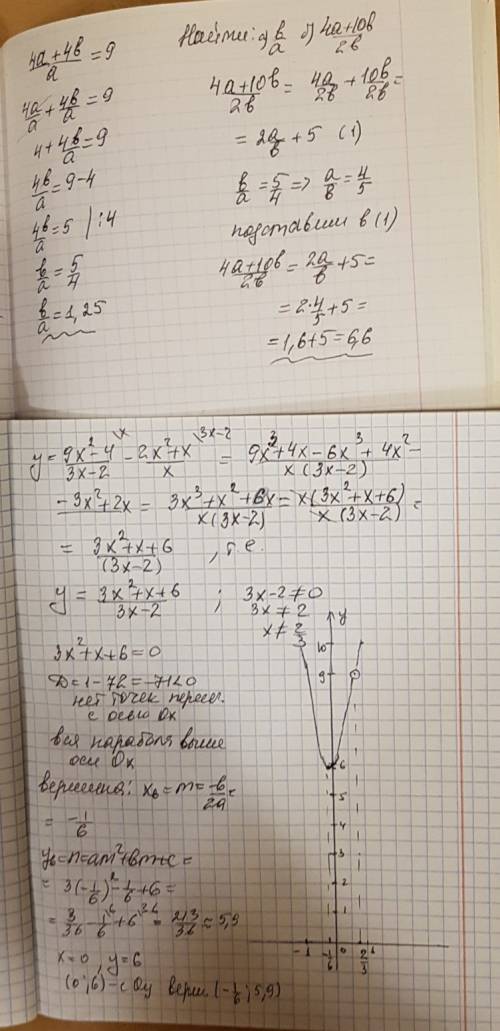 Найти: а) b/a б) (4a+10b)/2b
(4a+4b)/a = 9
4a/a + 4b/a = 9
4 + 4b/a = 9
4b/a = 9-4
4b/a = 5 | :4
b/a = 5/4
b/a = 1,25
(4a+10b)/2b = 4a/2b + 10b/2b =
= 2a/b + 5 (1)
b/a = 5/4 => a/b = 4/5
подставим в (1)
(4a+10b)/2b = 2a/b + 5 =
= 2·4/5 + 5 =
= 1,6+5 = 6,6
y = (9x²-4)/(3x-2) \x - (2x²+x)/x \3x-2 = (9x³+4x-6x³+4x²-
-3x²+2x)/(x(3x-2)) = (3x³+x²+6x)/(x(3x-2)) = x(3x²+x+6)/(x(3x-2)) =
= (3x²+x+6)/(3x-2) , т.е.
y = (3x²+x+6)/(3x-2) ; 3x-2≠0
3x≠2
x≠2/3
3x²+x+6=0
D=1-72=-71<0
нет точек перес.
с осью Ox
вся парабола выше
оси Ox
вершина: xв=m=-b/2a=
= -1/6
yв=n=am²+bm+c=
= 3(-1/6)²-1/6+6=
= 3/36 - 1/6 \6 + 6 \36 = 213/36 ≈ 5,9
x=0, y=6
(0;6)-с Oy верш (-1/6; 5,9)
y
10
9
6
5
4
3
2
1
-1 -1/6 0 2/3 1